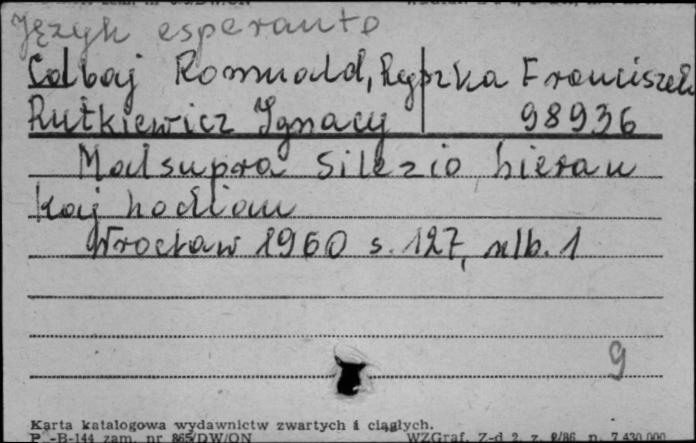 Język esperanto
Colbaj Romuald, Ryszka Franciszek
Rutkiewicz Ignacy 98936
Malsupra Silezio hieraŭ
kaj hodiaŭ
Wrocław 1960 s. 127, nlb. 1
9
Karta katalogowa wydawnictw zwartych i ciągłych.
P. -B-144 zam. nr 865/DW/ON WZGraf. Z-d 2, z. 2/86 n. 7.430.000